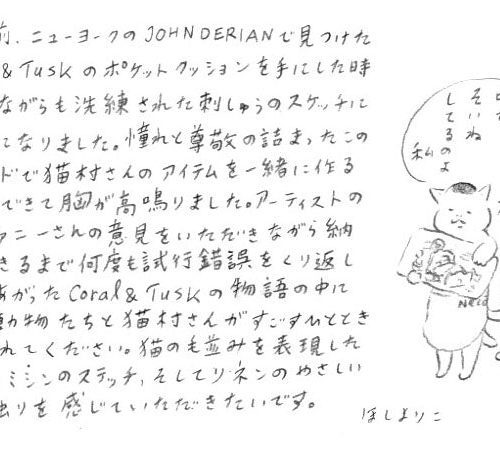 前、ニューヨークのJOHN DERIANで見つけた
& Tuskのポケットクッションを手にした時
ながらも洗練された刺しゅうのスケッチに
になりました。憧れと尊敬の詰まったこの
ドで猫村さんのアイテムを一緒に作る
できて胸が高鳴りました。アーティストの
ァニーさんの意見をいただきながら納
きるまで何度も試行錯誤をくり返し
あがったCoral & Tuskの物語の中に
動物たちと猫村さんがすごすひととき
れてください。猫の毛並みを表現した
ミシンのステッチ、そしてリネンのやさしい
触りを感じていただきたいです。
そいね
してるのよ
私
ほしよりこ